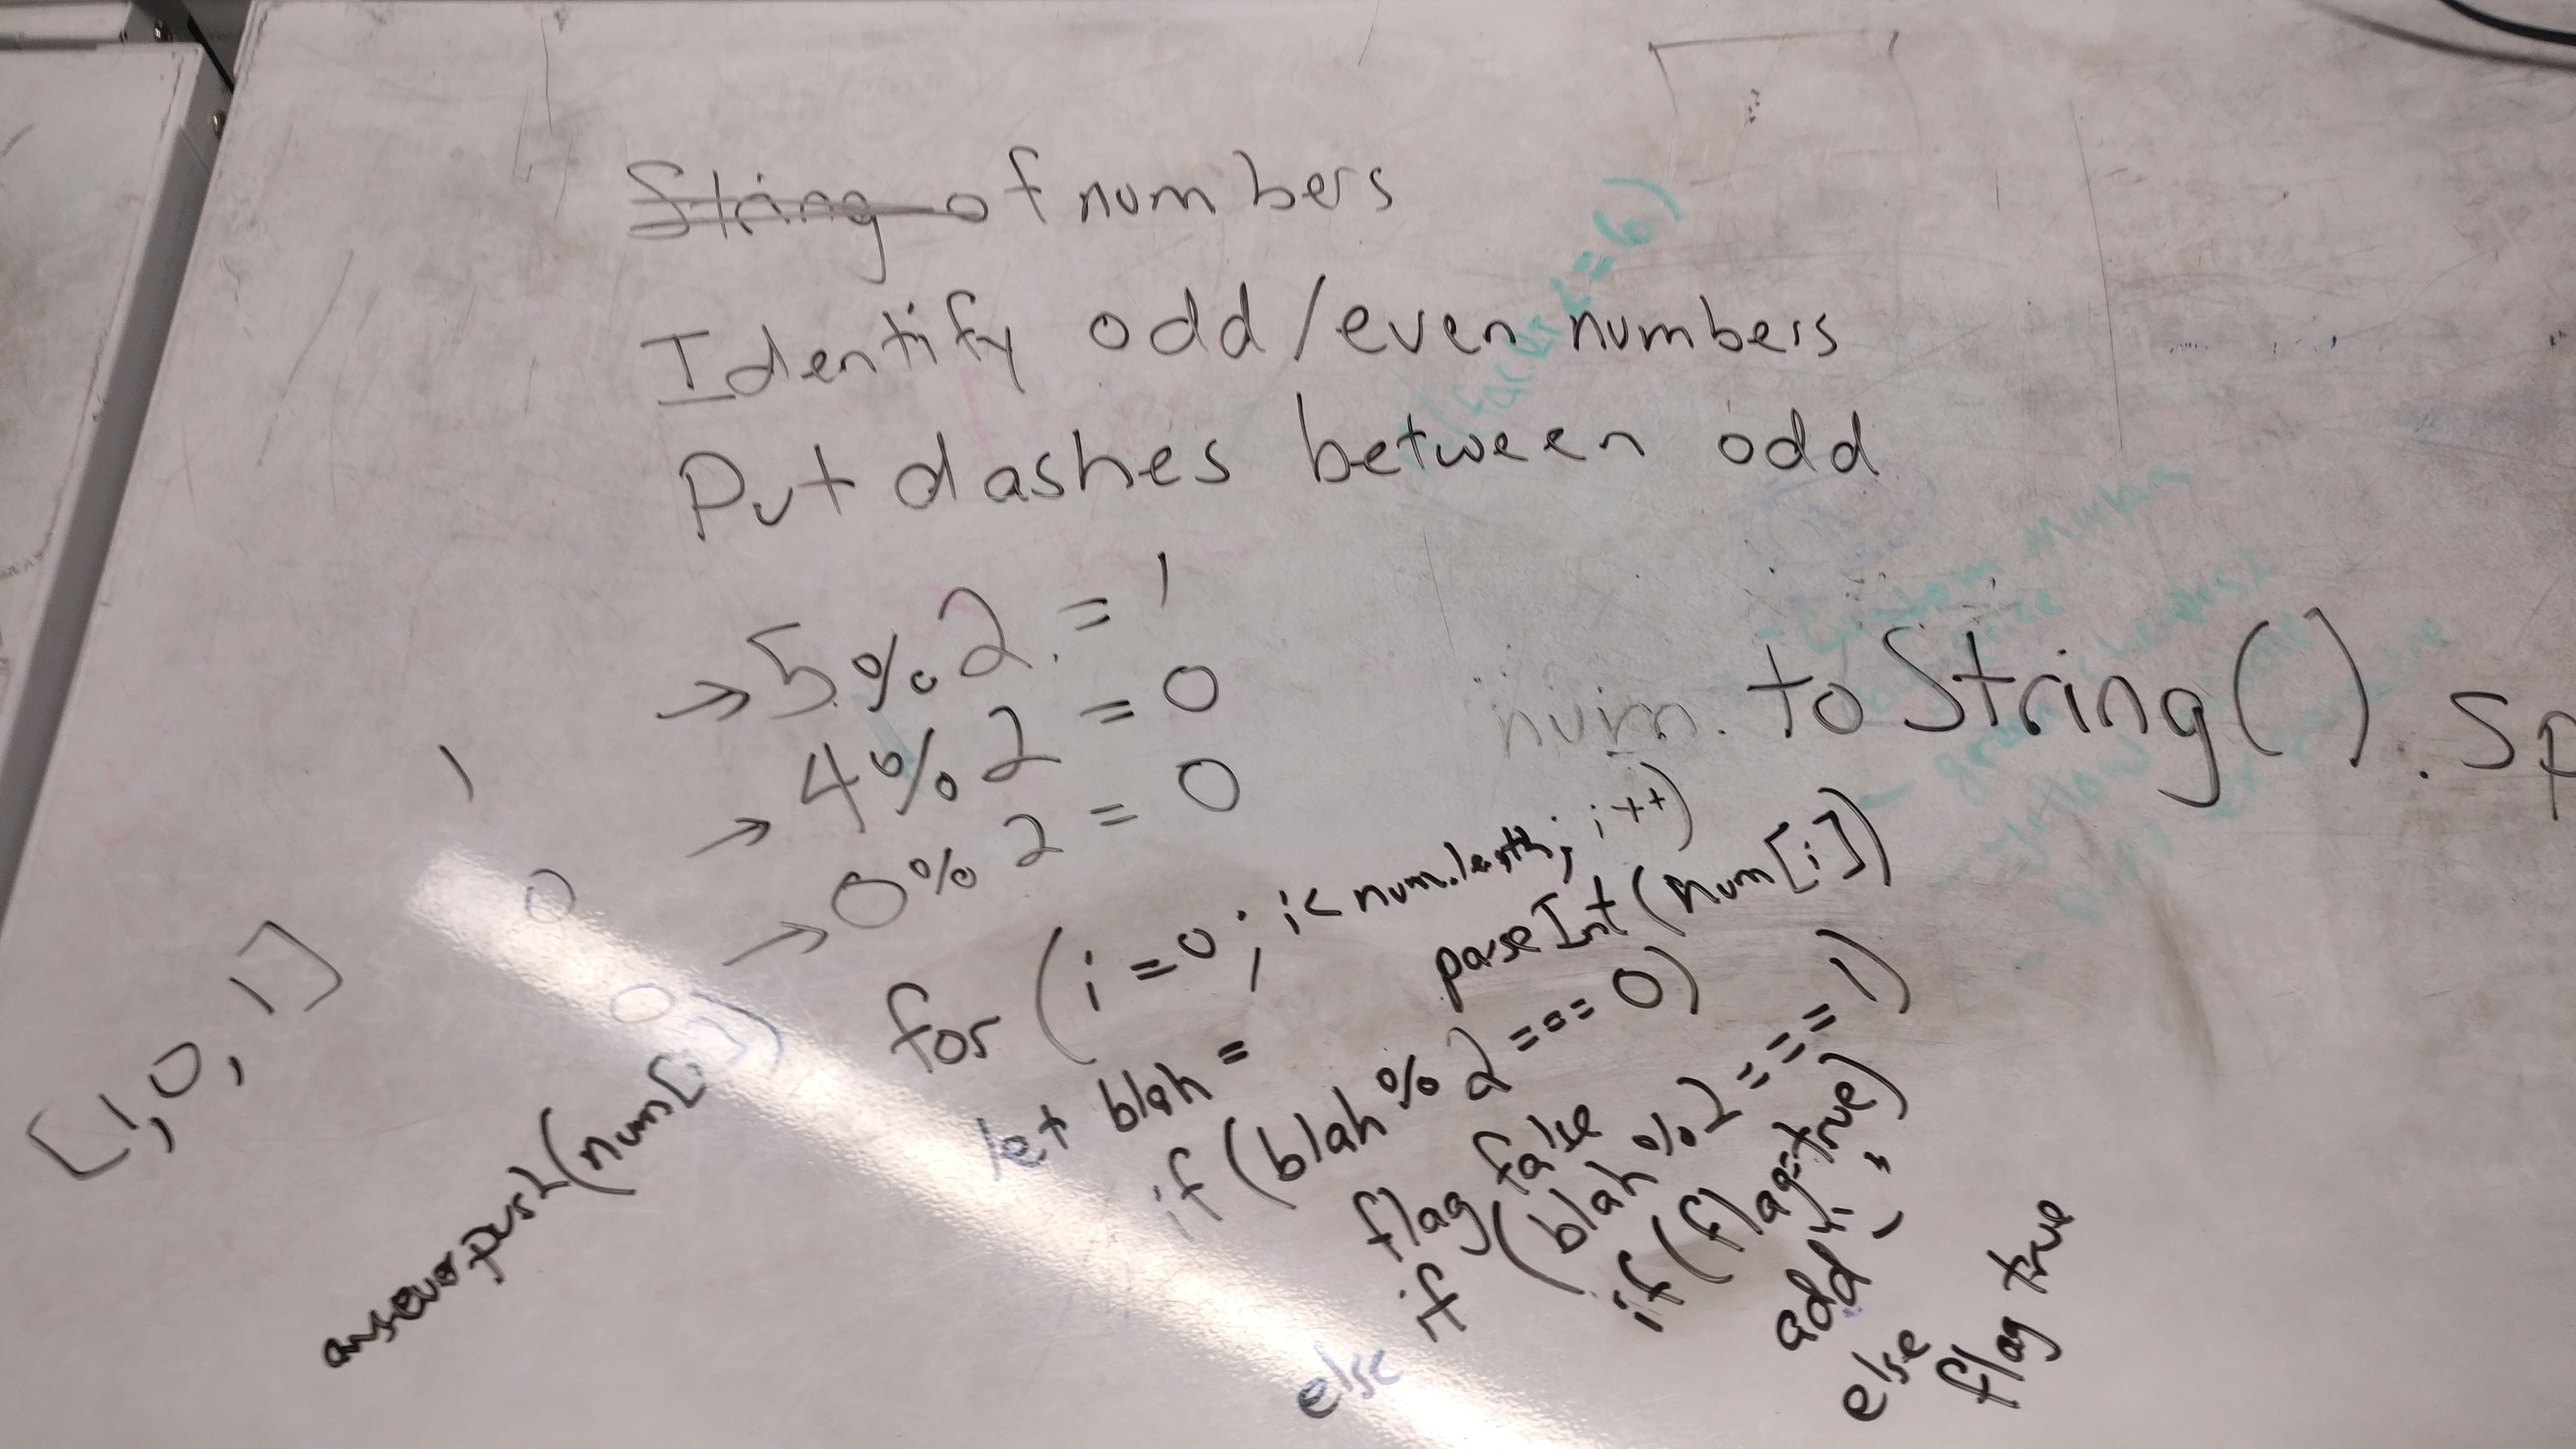 String of numbers
Identify odd/even numbers
Put dashes between odd
→ 5%2 = 1
→ 4%2 = 0
→ 0%2 = 0
num.toString().sp
1
0
0
[1,0,1]
answer.push(num[i])
for (i=0; i<num.length; i++)
let blah = parseInt(num[i])
if (blah%2 === 0)
flag false
else if (blah%2 === 1)
if (flag=true)
add "-"
else
flag true
= 6)